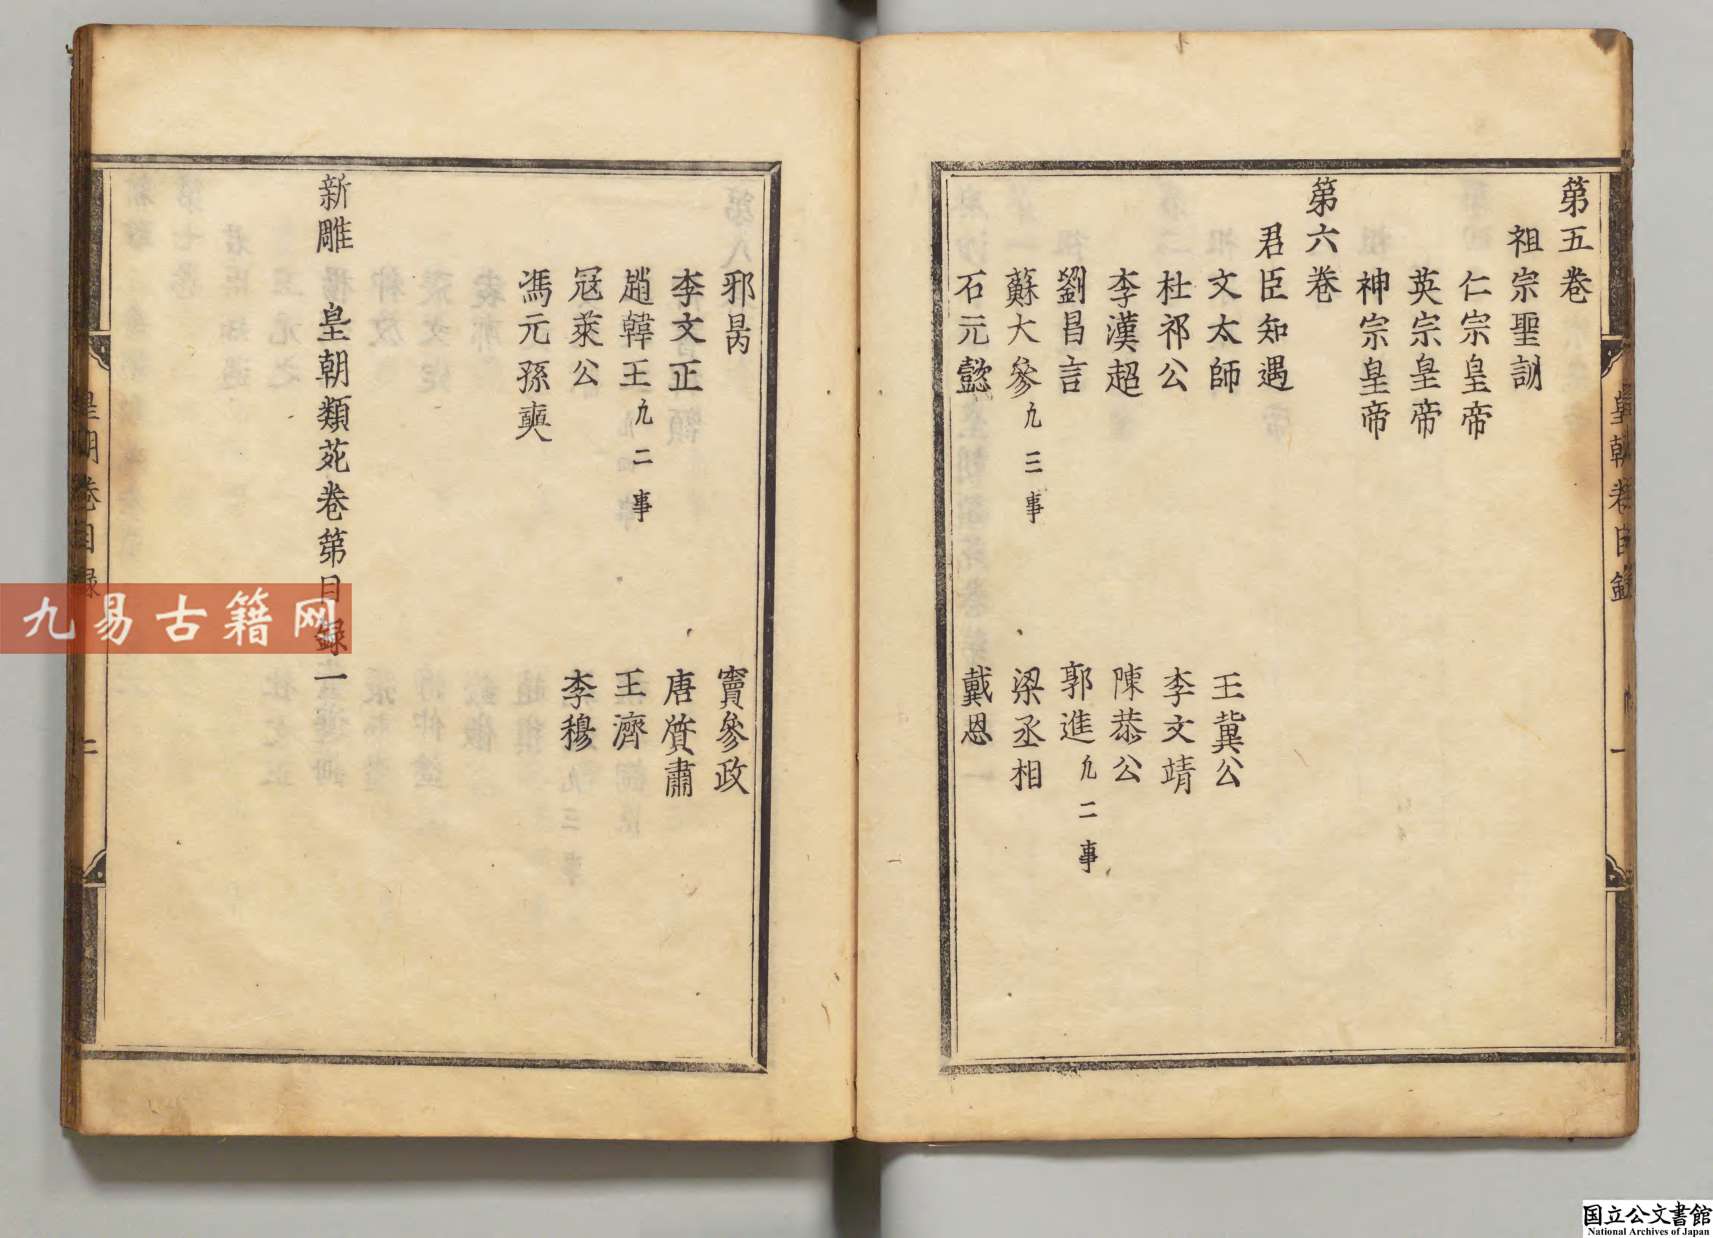 第五卷
祖宗聖訓
仁宗皇帝
英宗皇帝
神宗皇帝
第六卷
君臣知遇
文太師 王冀公
杜祁公 李文靖
李漢超 陳恭公
劉昌言 郭進凡二事
蘇大參凡三事 梁丞相
石元懿 戴恩
邢昺 竇參政
李文正 唐質肅
趙韓王凡二事 王濟
寇萊公 李穆
馮元孫奭
新雕 皇朝類苑卷第目錄一
皇朝卷目錄 一
皇朝卷目録 二
九易古籍网
国立公文書館
National Archives of Japan